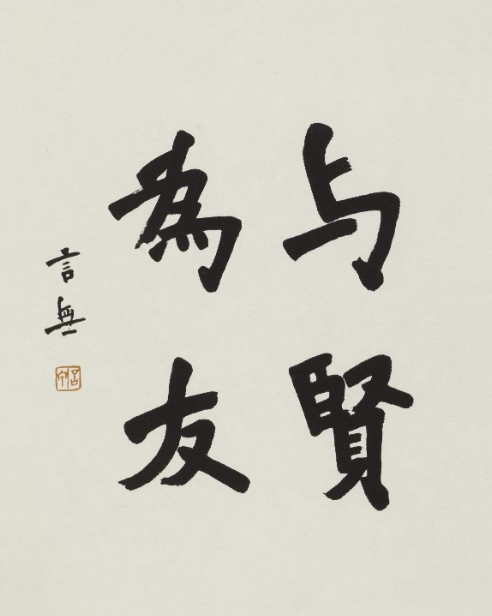 与賢
為友
言無